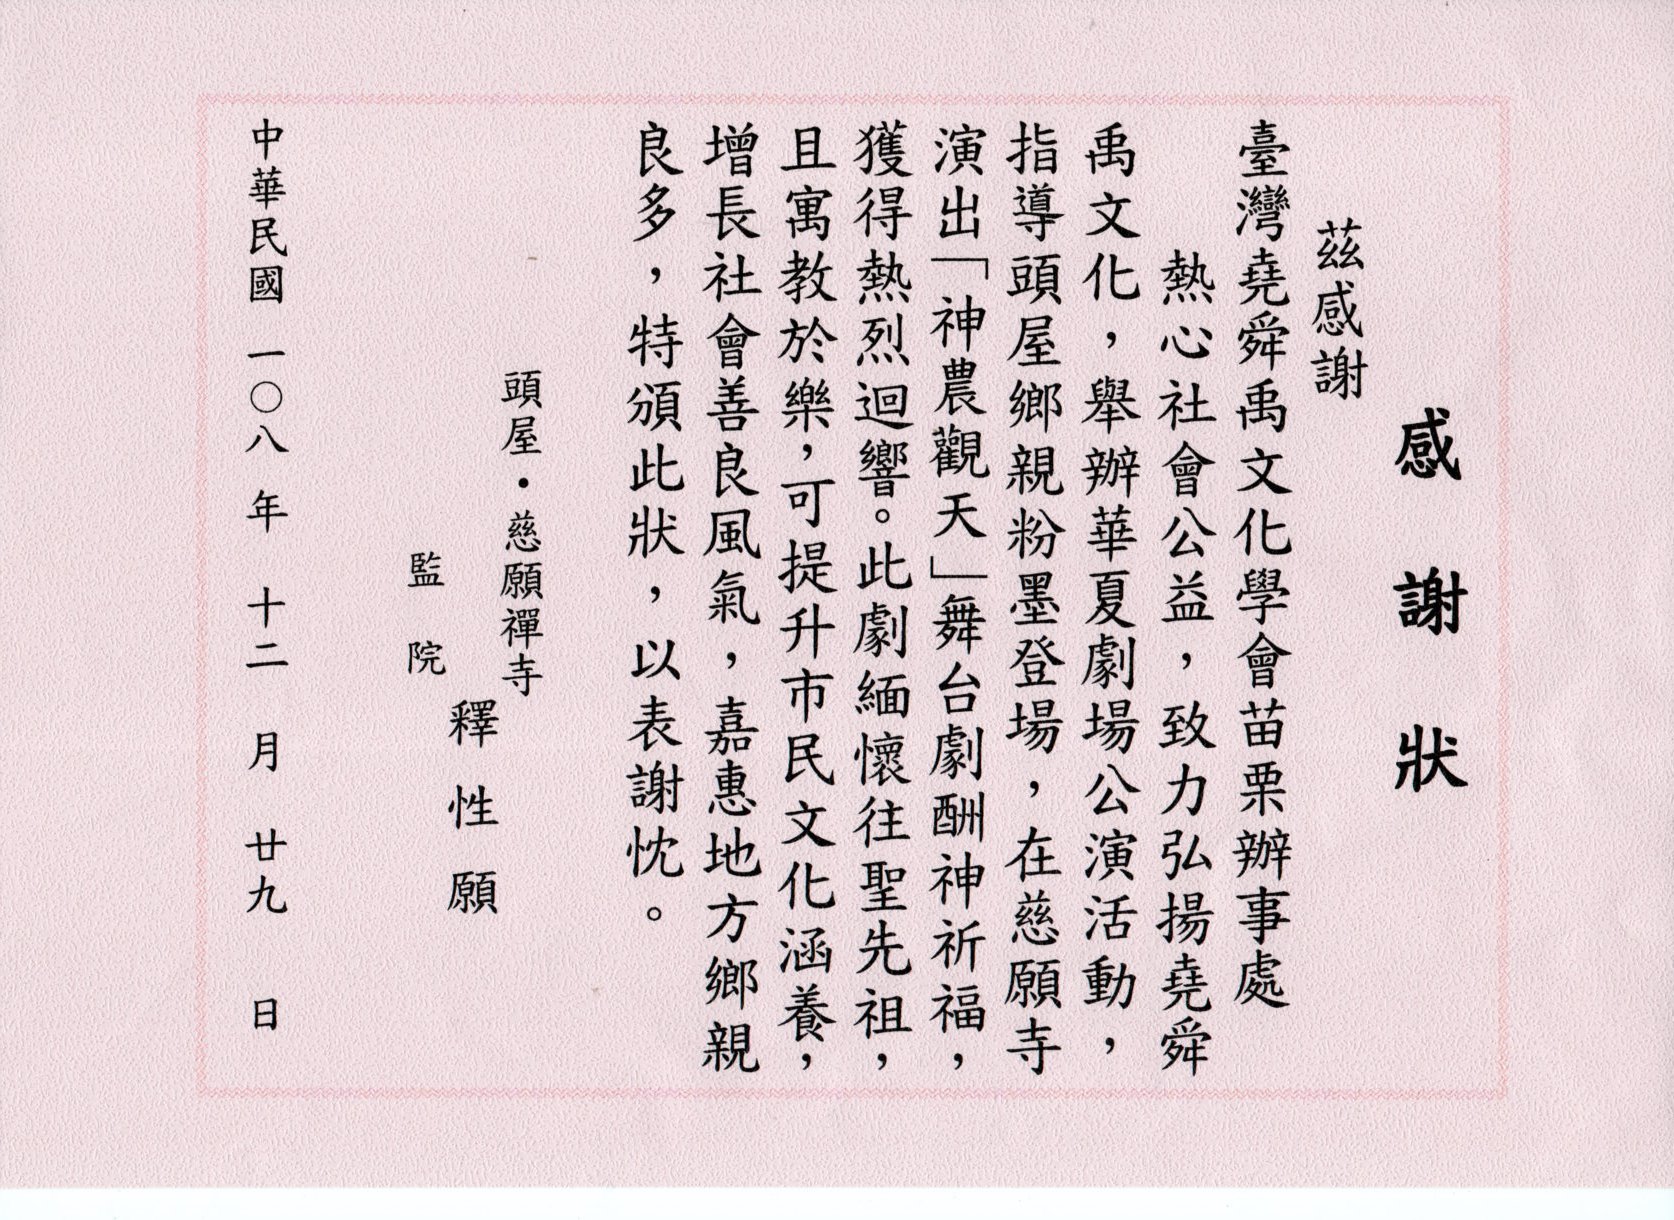 感謝狀
茲感謝
臺灣堯舜禹文化學會苗栗辦事處
熱心社會公益，致力弘揚堯舜
禹文化，舉辦華夏劇場公演活動，
指導頭屋鄉親粉墨登場，在慈願寺
演出「神農觀天」舞台劇酬神祈福，
獲得熱烈迴響。此劇緬懷往聖先祖，
且寓教於樂，可提升市民文化涵養，
增長社會善良風氣，嘉惠地方鄉親
良多，特頒此狀，以表謝忱。
頭屋・慈願禪寺
釋性願
監院
中華民國 一〇八 年 十二 月 廿九 日